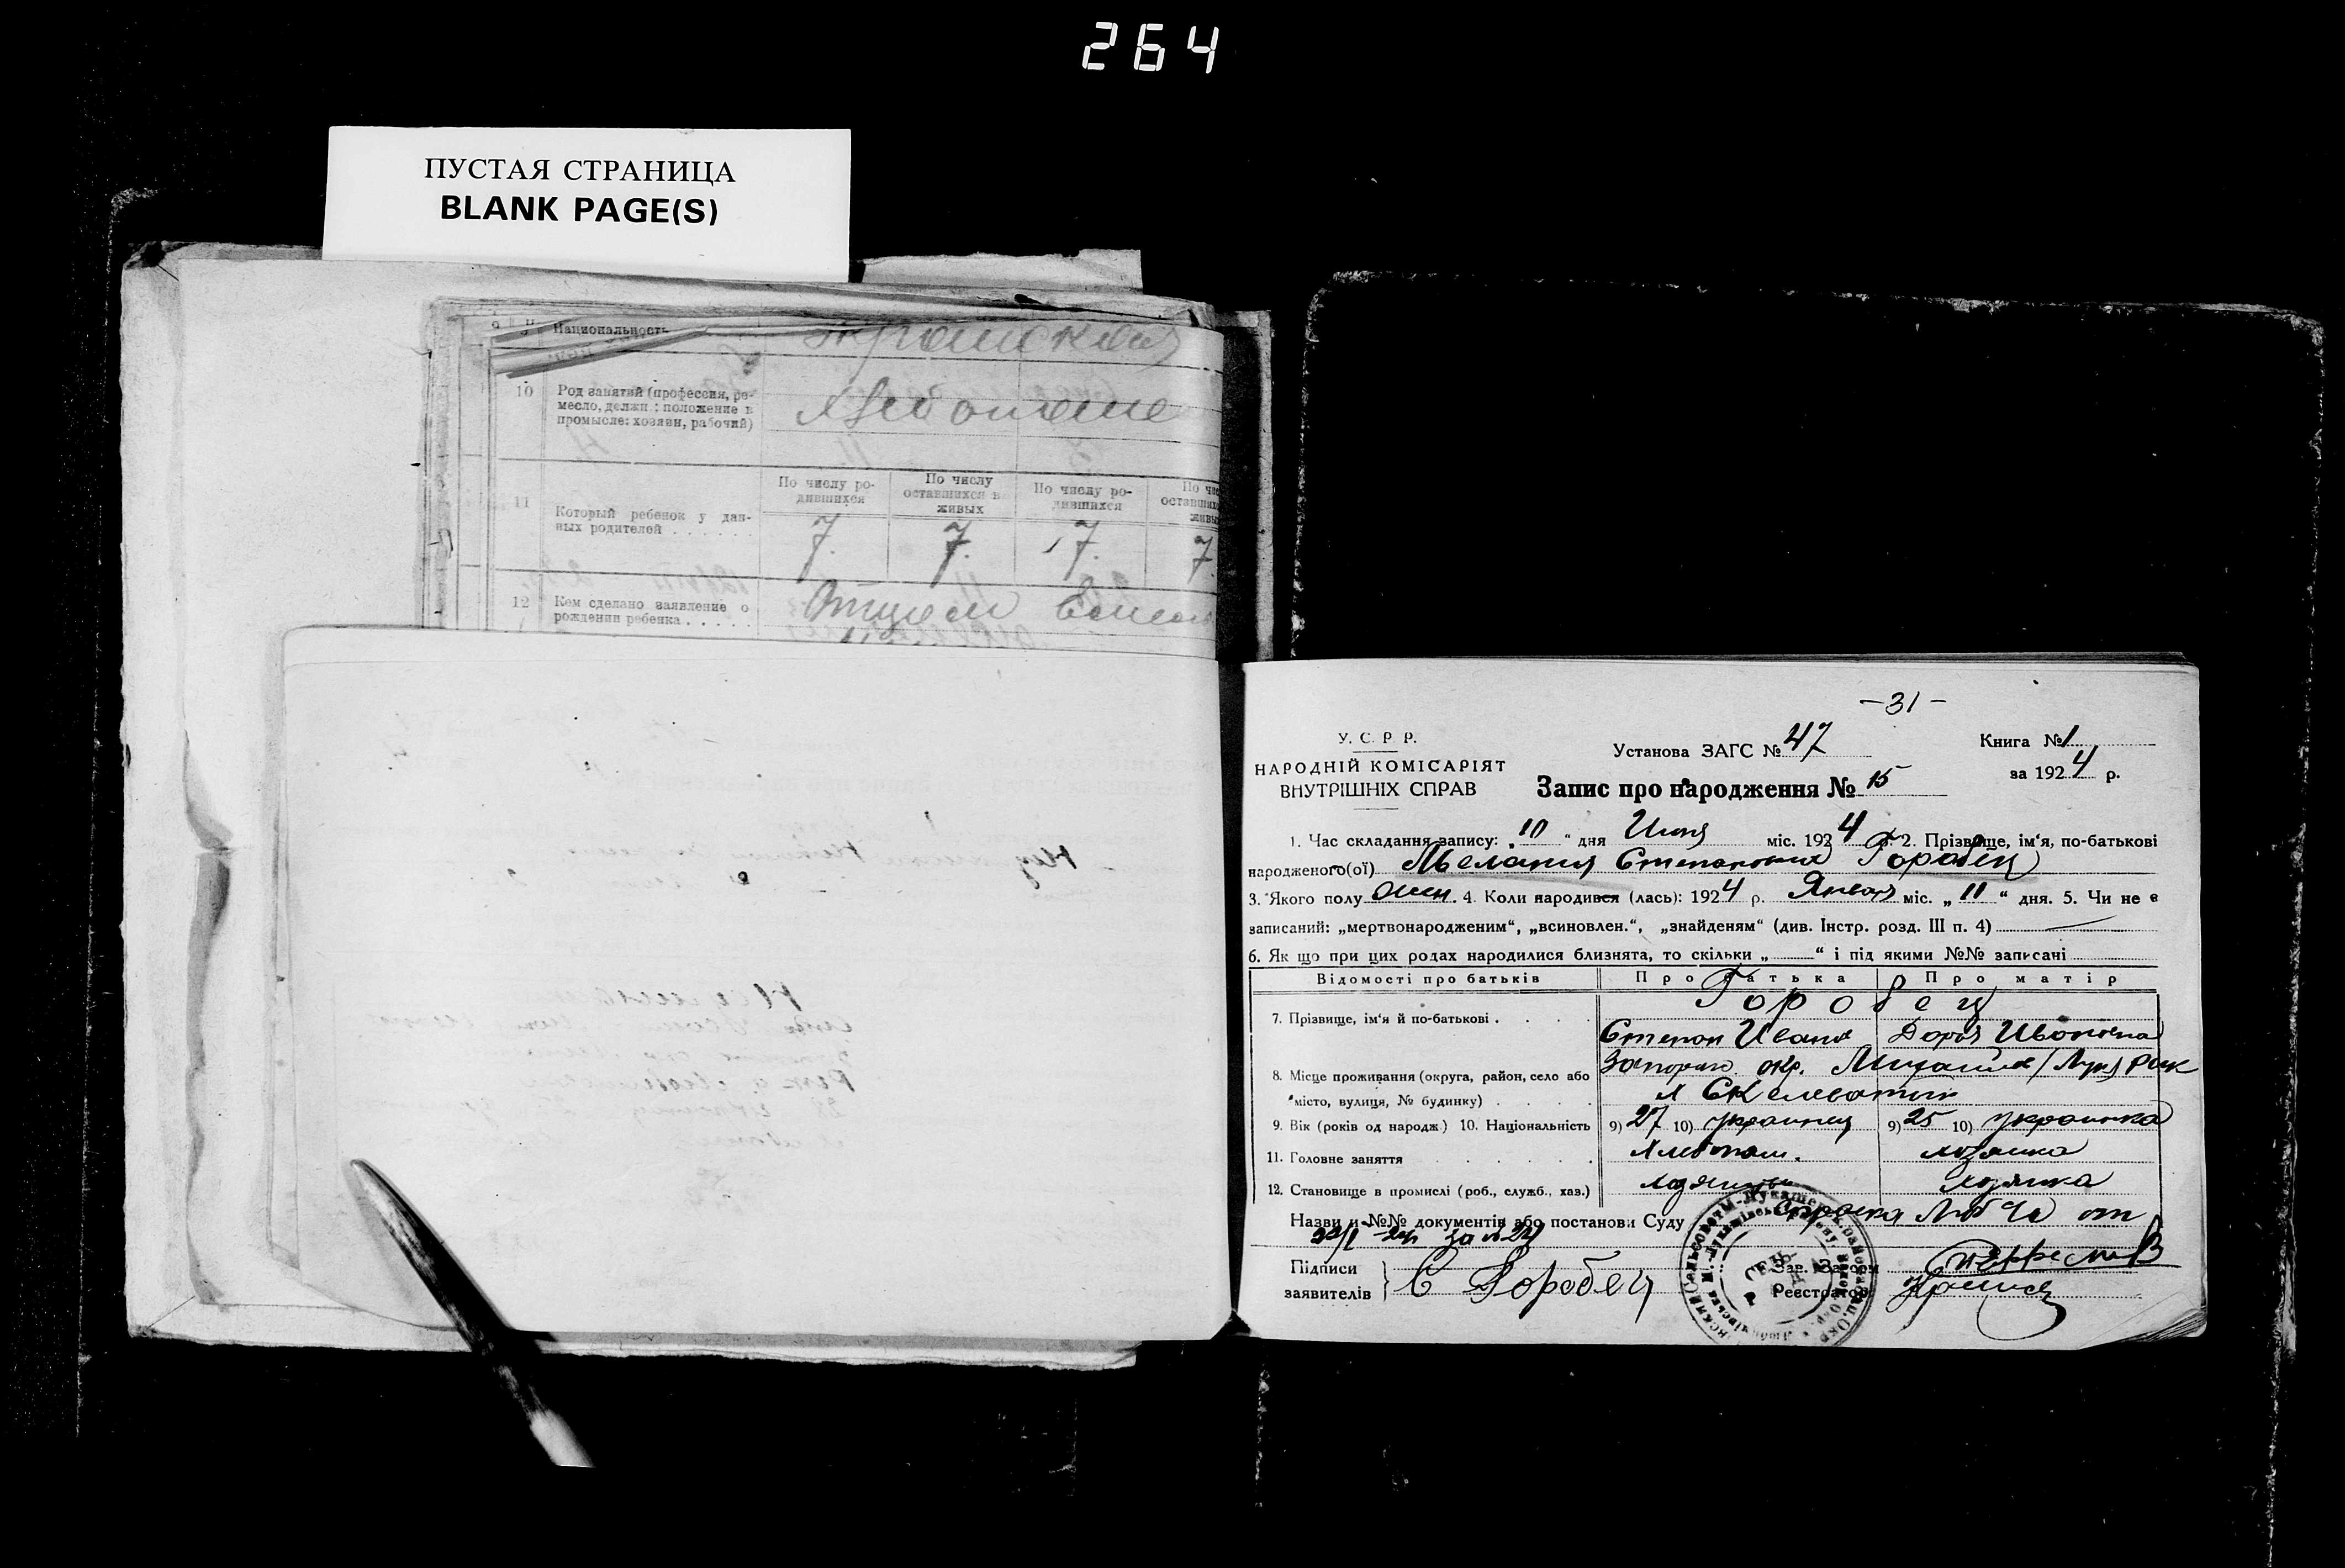 264
ПУСТАЯ СТРАНИЦА
BLANK PAGE(S)
Национальность
10 Род занятий (профессия, ре-
месло, должн.; положение в
промысле: хозяин, рабочий)
11 Который ребенок у дан-
ных родителей . . . . . .
По числу ро-
дившихся
По числу
оставшихся в
живых
По числу ро-
дившихся
7. 7. 7. 7.
12 Кем сделано заявление о
рождении ребенка . . . . .
Отцом
-31-
У. С. Р. Р.
НАРОДНІЙ КОМІСАРІЯТ
ВНУТРІШНІХ СПРАВ
Установа ЗАГС № 47
Запис про народження № 15
Книга № 1
за 1924 р.
1. Час складання запису: "10" дня міс. 1924 р. 2. Прізвище, ім'я, по-батькові
народженого(ої) Мелания Степановна Горобец
3. Якого полу жен. 4. Коли народився (лась): 1924 р. Января міс. „11" дня. 5. Чи не є
записаний: „мертвонародженим", „всиновлен.", „знайденям" (див. Інстр. розд. III п. 4)
6. Як що при цих родах народилися близнята, то скільки „ " і під якими №№ записані
Відомості про батьків Про батька Про матір
7. Прізвище, ім'я й по-батькові . Горобец
Степан Иванов Дарья Ивановна
8. Місце проживання (округа, район, село або
місто, вулиця, № будинку) . . . .
Запорож. окр.
9. Вік (років од народж.) 10. Національність 9) 27 10) украинец 9) 25 10) украинка
11. Головне заняття хлебопаш. хозяйка
12. Становище в промислі (роб., служб., хаз.) хозяйка
Назви и №№ документів або постанови Суду Справка от
Підписи
заявителів С Горобец
Зав. Загсом
Реєстратор